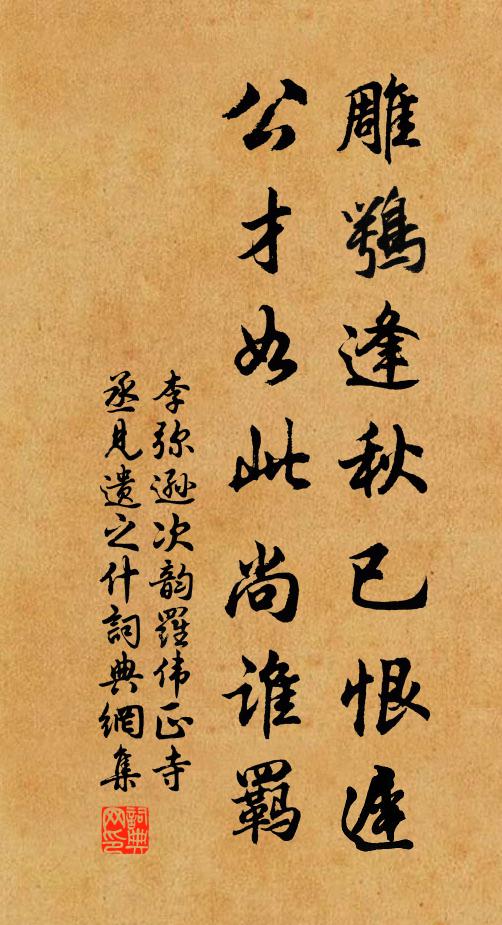 雕鶚逢秋已恨遲
公才如此尚誰羈
李弥遜次韵羅伟正寺
丞見遺之什詞典網集
詞典
网印